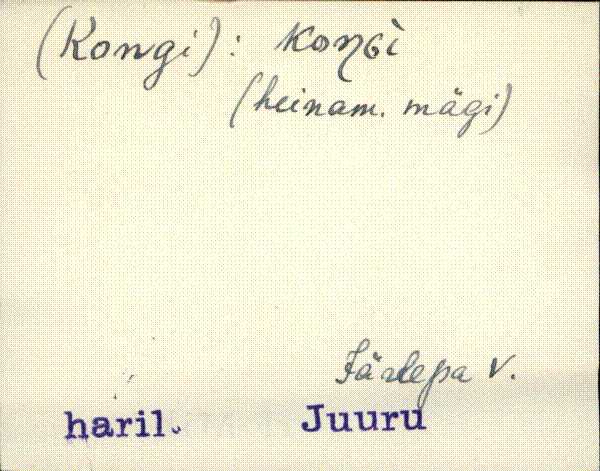 (Kongi): koŋGì
(heinam. mägi)
Järlepa v.
haril. Juuru